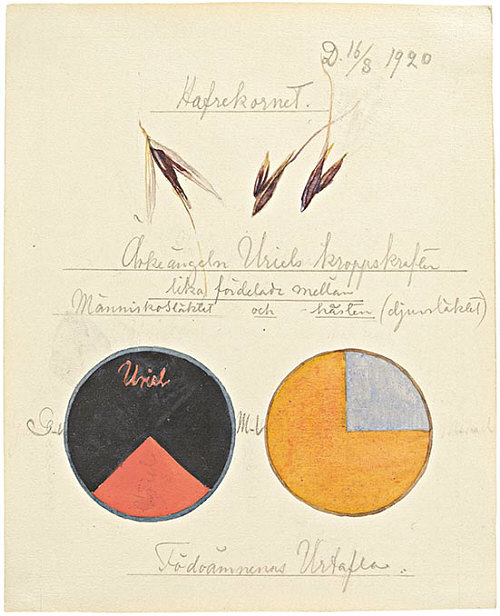 D. 16/8 1920
Hafrekornet.
Ärkeängeln Uriels kroppskrafter
lika fördelade mellan
Människosläktet och hästen (djursläktet)
Uriel
G-
M-
Födoämnenas Urtafla.